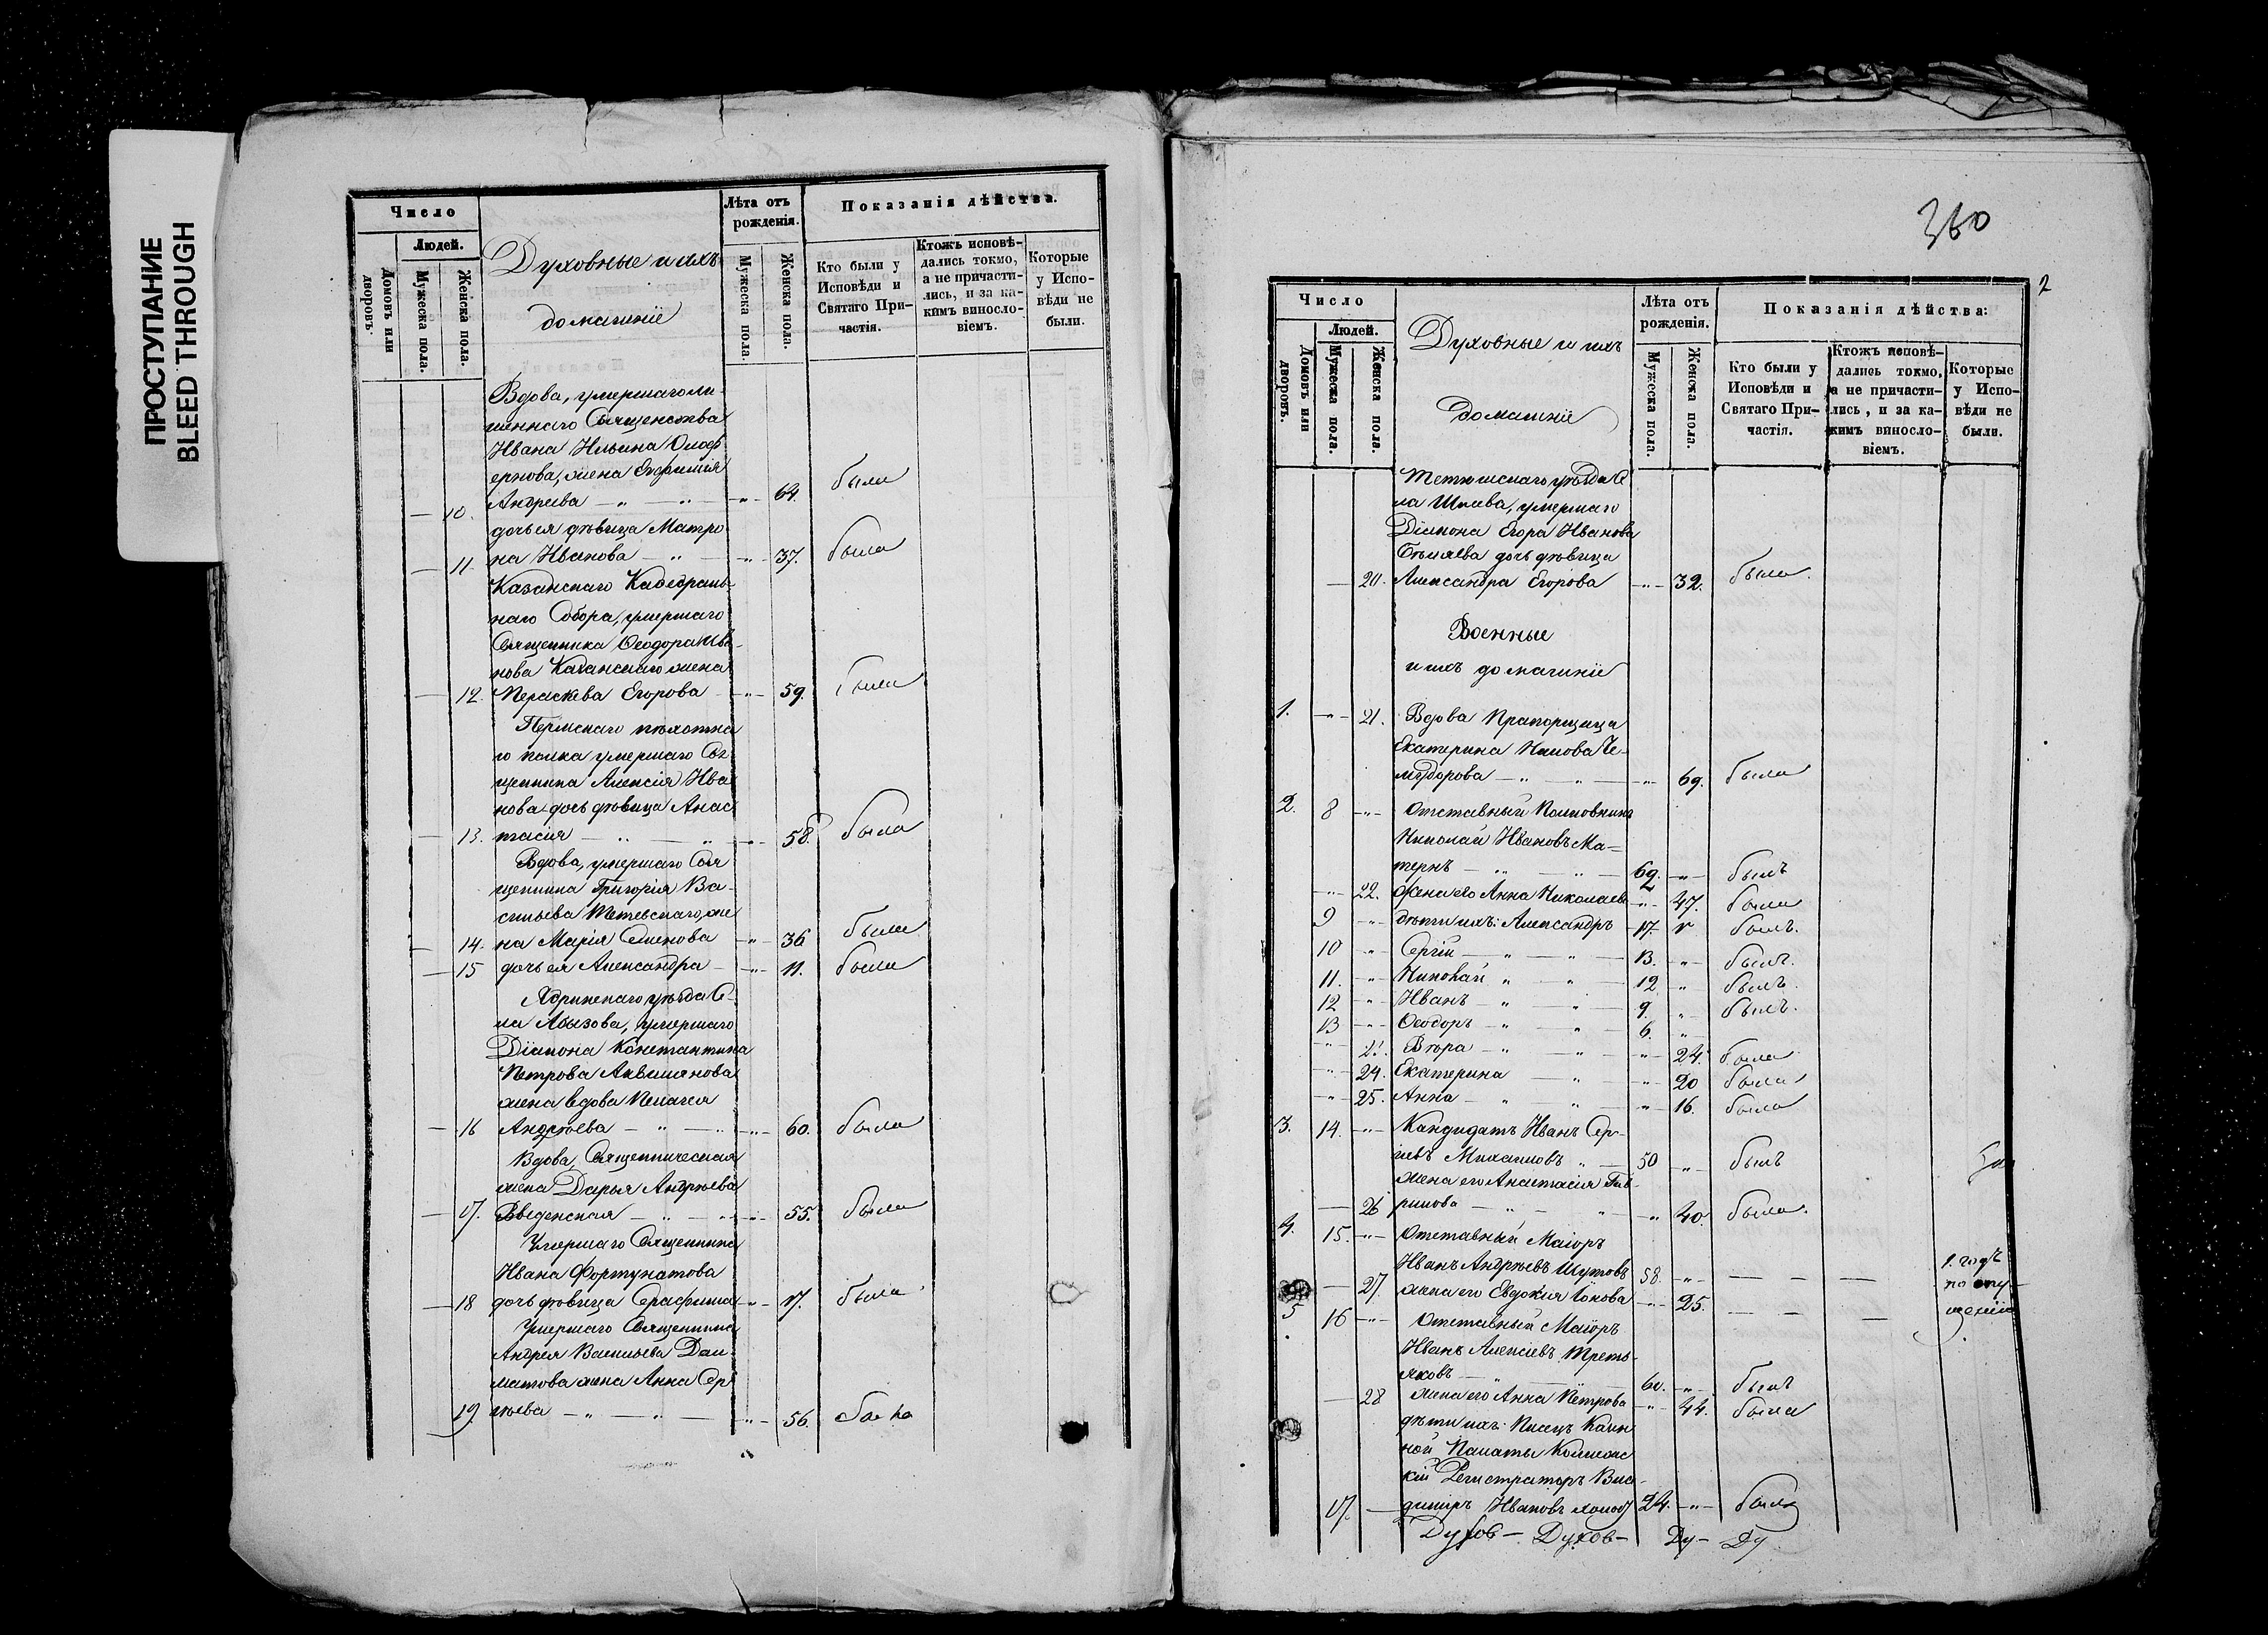 ПРОСТУПАНИЕ
BLEED THROUGH
Число
Людей.
Домовъ или дворовъ.
Мужеска пола.
Женска пола.
Духовные и ихъ
домашніе
Лѣта отъ рожденія.
Мужеска пола.
Женска пола.
Показанія дѣйства.
Кто были у Исповѣди и Святаго Причастія.
Ктожъ исповѣдались токмо, а не причастились, и за какимъ винословіемъ.
Которые у Исповѣди не были.
Вдова, умершаго ли-
шеннаго Священства
Ивана Ильина Олоф
ернова, жена Евфимія
10. Андреева — " — " — 64. была
дочь ея дѣвица Матро
11. на Иванова — " — 37. была
Казанскаго Кафедраль-
наго Собора, умершаго
Священника Ѳеодора Ива-
нова Казанскаго жена
12. Параскева Егорова — " — 59. была
Пермскаго пѣхотна
го полка умершаго Свя
щенника Алексія Ива
нова дочь дѣвица Анас
13. тасія — " — " — 58. была
Вдова, умершаго Свя
щенника Григорія Ва-
сильева жe
14. на Марія Семенова — " — 36 была
15 дочь ея Александра — " — 11. была
Ядринскаго уѣзда Се-
ла Абызова, умершаго
Діакона Константина
Петрова
жена вдова Пелагея
16 Андрѣева — " — " — 60. была
Вдова, Священническая
жена Дарья Андрѣева
17. Введенская — " — " — 55. была
Умершаго Священника
Ивана Фортунатова
18 дочь дѣвица Серафима — " — 17. была
Умершаго Священника
Андрея Васильева Дал-
матова жена Анна Сер
19. гѣева — " — " — " — 56. была
360
2
Число
Людей.
Домовъ или дворовъ.
Мужеска пола.
Женска пола.
Духовные и ихъ
домашніе
Лѣта отъ рожденія.
Мужеска пола.
Женска пола.
Показанія дѣйства:
Кто были у Исповѣди и Святаго Причастія.
Ктожъ исповѣдались токмо, а не причастились, и за какимъ винословіемъ.
Которые у Исповѣди не были.
Тетюшскаго уѣзда Се
ла умершаго
Діакона Егора Иванова
Бѣляева дочь дѣвица
20. Александра Егорова — " — 32. была.
Военные
и ихъ домашніе
1. — " — 21. Вдова Прапорщица
Екатерина Че-
модорова — " — " — 69. была
2. 8 — " — Отставный Полковникъ
Николай Ивановъ Ма-
тернъ — " — " — 69. — " — былъ
— " — 22. Жена его Анна Николаева — " — 47. была
9 — " — дѣти ихъ: Александръ — 17. " былъ.
10 — " — Сергій — " — " — 13. — " — былъ.
11. — " — Николай " — " — 12. " былъ.
12 — " — Иванъ — " — " — 9. " былъ.
13 — " — Ѳеодоръ — " — " — 6. "
— " — 23. Вѣра — " — " — " — 24. была
— " — 24. Екатерина — " — " — 20 была
— " — 25. Анна — " — " — " — 16. была
3. 14. — " — Кандидатъ Иванъ Сер-
гіевъ Михаиловъ " — 50 — " — былъ
жена его Анастасія Гав-
— 26 рилова — " — " — " 40. была.
4. 15. — " — Отставный Маіоръ
Иванъ Андрѣевъ Шутовъ 58. — " — — — — 1. годъ
— 27. жена его Евдокія — " — 25. — — — по опу-
щенію
5 16 — " — Отставный Маіоръ
Иванъ Алексіевъ Треть-
яковъ — " — 60. — " — былъ
— 28 жена его Анна Петрова — " — 44. была
дѣти ихъ: Писецъ Казен
ной Палаты Коллежс
кій Регистраторъ Вла-
17. — димиръ Ивановъ холост 24. — " — былъ
Духов— Духов— Ду— Ду